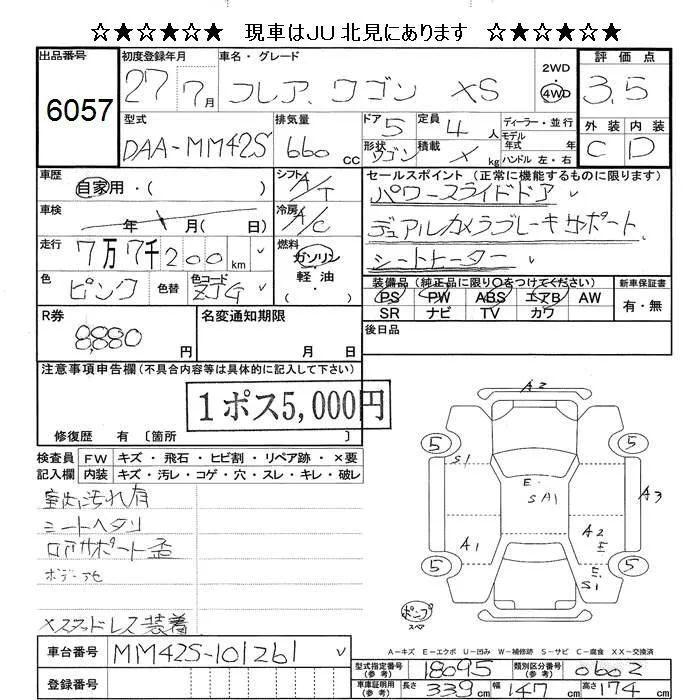 ☆★☆★☆★ 現車はJU北見にあります ☆★☆★☆★
出品番号 6057
初度登録年月 27 7月
車名・グレード フレア、ワゴン XS
2WD 4WD
評価点 3.5
外装 C 内装 D
型式 DAA-MM42S
排気量 660 cc
ドア 5
定員 4 人
形状 ワゴン
積載 × kg
ディーラー・並行
モデル年式 年
ハンドル 左・右
車歴 自家用・( )
シフト A/T
車検 年 月( 日)
冷房 A/C
走行 7万7千200km
燃料 ガソリン 軽油
色 ピンク 色替
色コード ZJG
セールスポイント (正常に機能するものに限ります)
パワースライドドア
デュアルカメラブレーキサポート
シートヒーター
装備品 (純正品に限り○をつけてください) 新車保証書
PS PW ABS エアB AW 有・無
SR ナビ TV カワ
後日品
R券 8,880 円
名変通知期限 月 日
注意事項申告欄 (不具合内容等は具体的に記入して下さい)
1ポス5,000円
修復歴 有 〔箇所 〕
検査員 FW キズ・飛石・ヒビ割・リペア跡・×要
記入欄 内装 キズ・汚レ・コゲ・穴・スレ・キレ・破レ
室内汚れ有
シートヘタリ
ロアサポート歪
ボデーアセ
×スタッドレス装着
A2
5 5
S1
E
SA1
A3
A1
A2
E
E
S1
5 5
ポンプ
スペア
A-キズ E-エクボ U-凹み W-補修跡 S-サビ C-腐食 XX-交換済
車台番号 MM42S-101261
登録番号
型式指定番号(参考) 18095 類別区分番号(参考) 0602
車庫証明用(参考) 長さ 339cm 幅 147cm 高さ 174cm